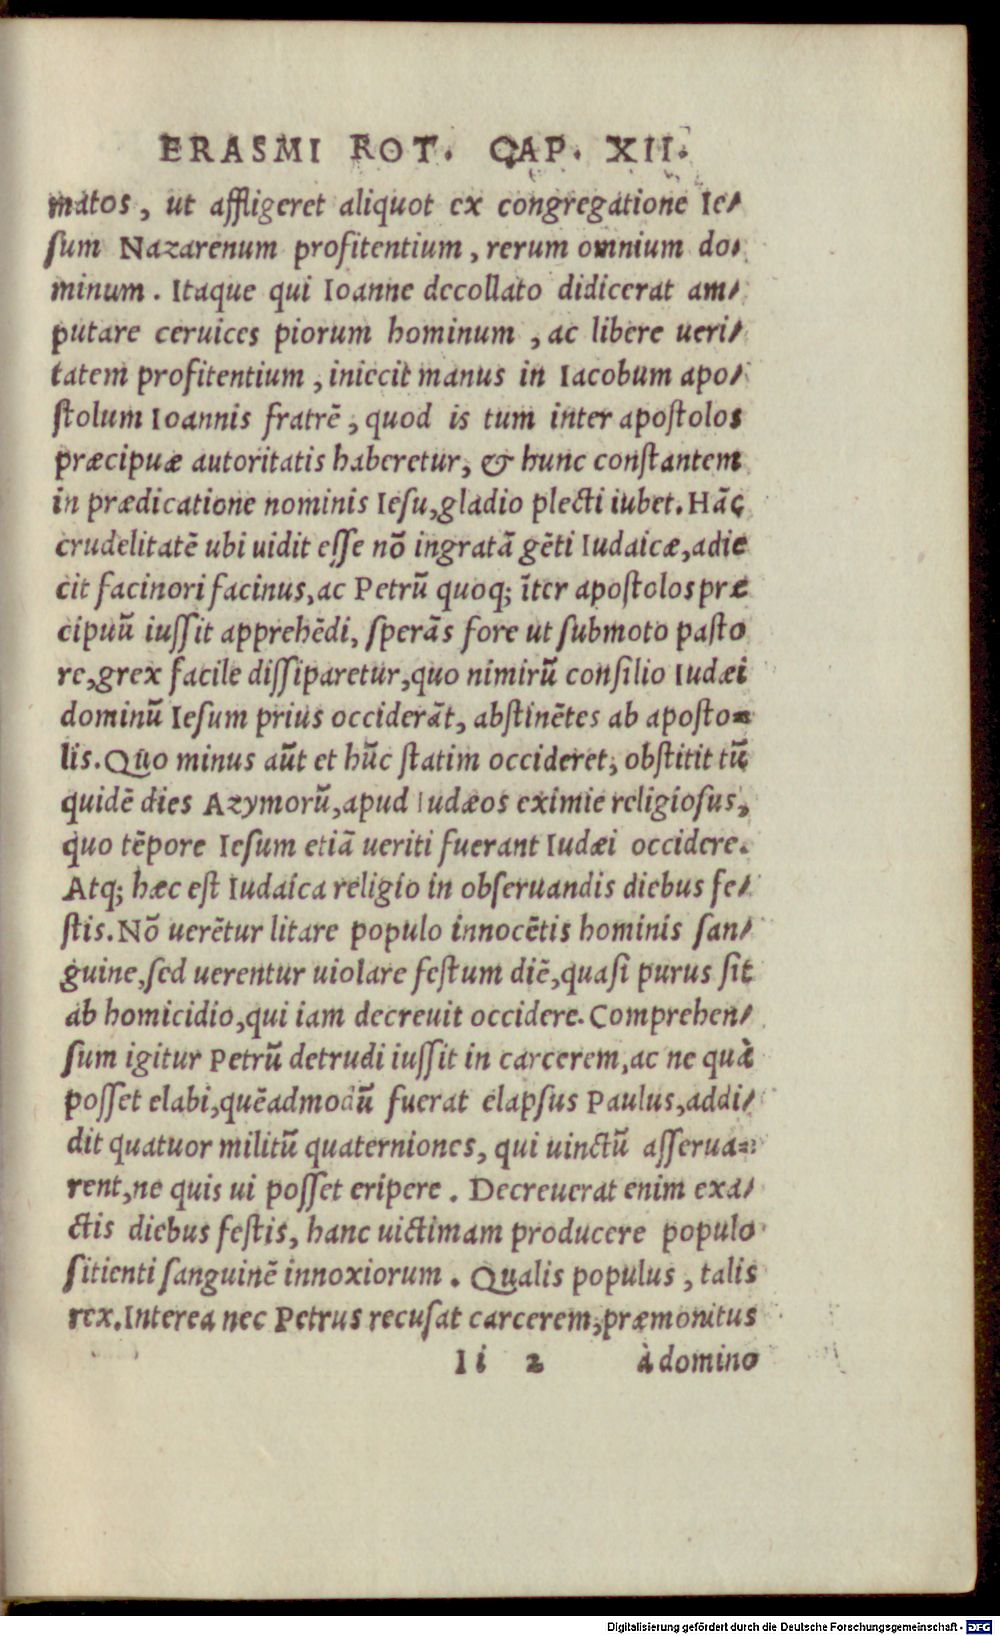 ERASMI ROT. CAP. XII.
matos, ut affligeret aliquot ex congregatione Ie⸗
ſum Nazarenum profitentium, rerum omnium do⸗
minum. Itaque qui Ioanne decollato didicerat am⸗
putare ceruices piorum hominum, ac libere ueri⸗
tatem profitentium, iniecit manus in Iacobum apo⸗
ſtolum Ioannis fratrē, quod is tum inter apoſtolos
præcipuæ autoritatis haberetur, & hunc conſtantem
in prædicatione nominis Ieſu, gladio plecti iubet. Hāc
crudelitatē ubi uidit eſſe nō ingratā gēti Iudaicæ, adie
cit facinori facinus, ac Petrū quoq; īter apoſtolos præ
cipuū iuſſit apprehēdi, ſperās fore ut ſubmoto paſto
re, grex facile diſſiparetur, quo nimirū conſilio Iudæi
dominū Ieſum prius occiderāt, abſtinētes ab apoſto⸗
lis. Quo minus aūt et hūc ſtatim occideret, obſtitit tū
quidē dies Azymorū, apud Iudæos eximie religioſus,
quo tēpore Ieſum etiā ueriti fuerant Iudæi occidere.
Atq; hæc eſt Iudaica religio in obſeruandis diebus fe⸗
ſtis. Nō uerētur litare populo innocētis hominis ſan⸗
guine, ſed uerentur uiolare feſtum diē, quaſi purus ſit
ab homicidio, qui iam decreuit occidere. Comprehen⸗
ſum igitur Petrū detrudi iuſſit in carcerem, ac ne quà
poſſet elabi, quēadmodū fuerat elapſus Paulus, addi⸗
dit quatuor militū quaterniones, qui uinctū aſſerua⸗
rent, ne quis ui poſſet eripere. Decreuerat enim exa⸗
ctis diebus feſtis, hanc uictimam producere populo
ſitienti ſanguinē innoxiorum. Qualis populus, talis
rex. Interea nec Petrus recuſat carcerem, præmonitus
Ii 2 à domino
Digitalisierung gefördert durch die Deutsche Forschungsgemeinschaft - DFG